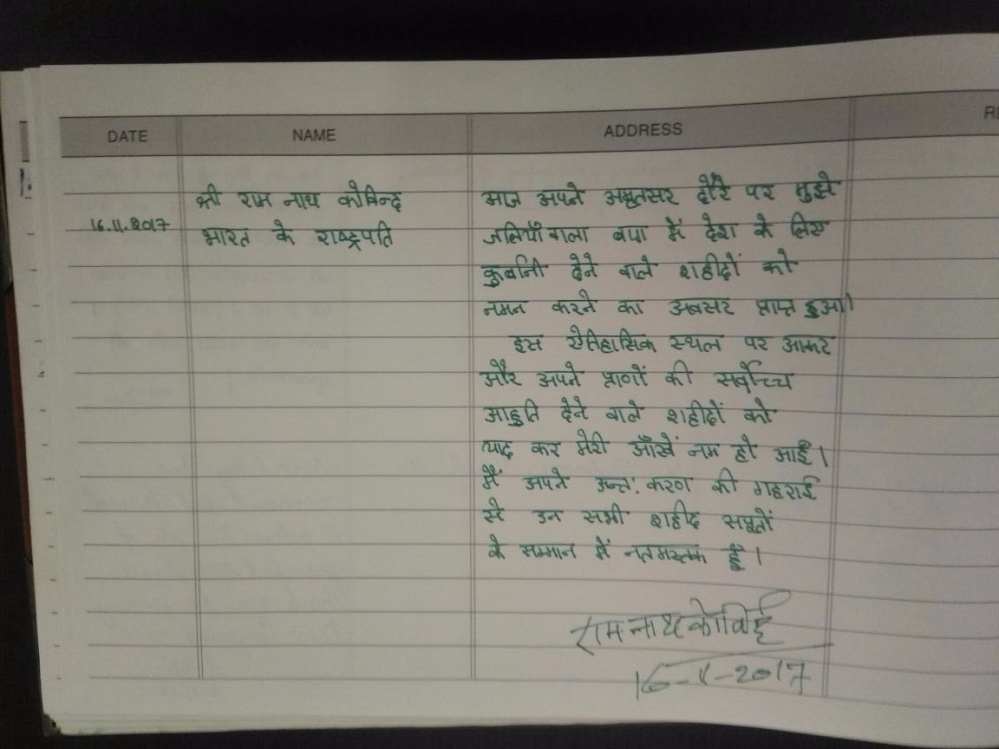 DATE NAME ADDRESS
16.11.2017
श्री राम नाथ कोविन्द
भारत के राष्ट्रपति
आज अपने अमृतसर दौरे पर मुझे
जलियाँवाला बाग में देश के लिए
कुर्बानी देने वाले शहीदों को
नमन करने का अवसर प्राप्त हुआ।
इस ऐतिहासिक स्थल पर आकर
और अपने प्राणों की सर्वोच्च
आहुति देने वाले शहीदों को
याद कर मेरी आँखें नम हो आईं।
मैं अपने अन्तः करण की गहराई
से उन सभी शहीद सपूतों
के सम्मान में नतमस्तक हूँ।
राम नाथ कोविंद
16-11-2017